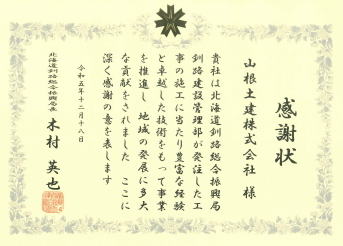 感謝状
山根土建株式会社 様
貴社は北海道釧路総合振興局
釧路建設管理部が発注した工
事の施工に当たり豊富な経験
と卓越した技術をもって事業
を推進し 地域の発展に多大
な貢献をされました ここに
深く感謝の意を表します
令和五年十二月十八日
北海道釧路総合振興局長
木村 英也